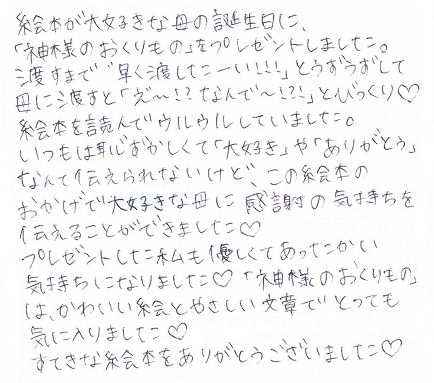 絵本が大好きな母の誕生日に、
「神様のおくりもの」をプレゼントしました。
渡すまで“早く渡したーい!!!”とうずうずして
母に渡すと「え゛〜!?なんで〜!?!」とびっくり♡
絵本を読んでウルウルしていました。
いつもは恥ずかしくて「大好き」や「ありがとう」
なんて伝えられないけど、この絵本の
おかげで大好きな母に感謝の気持ちを
伝えることができました♡
プレゼントした私も優しくてあったかい
気持ちになりました♡「神様のおくりもの」
は、かわいい絵とやさしい文章でとっても
気に入りました♡
すてきな絵本をありがとうございました♡